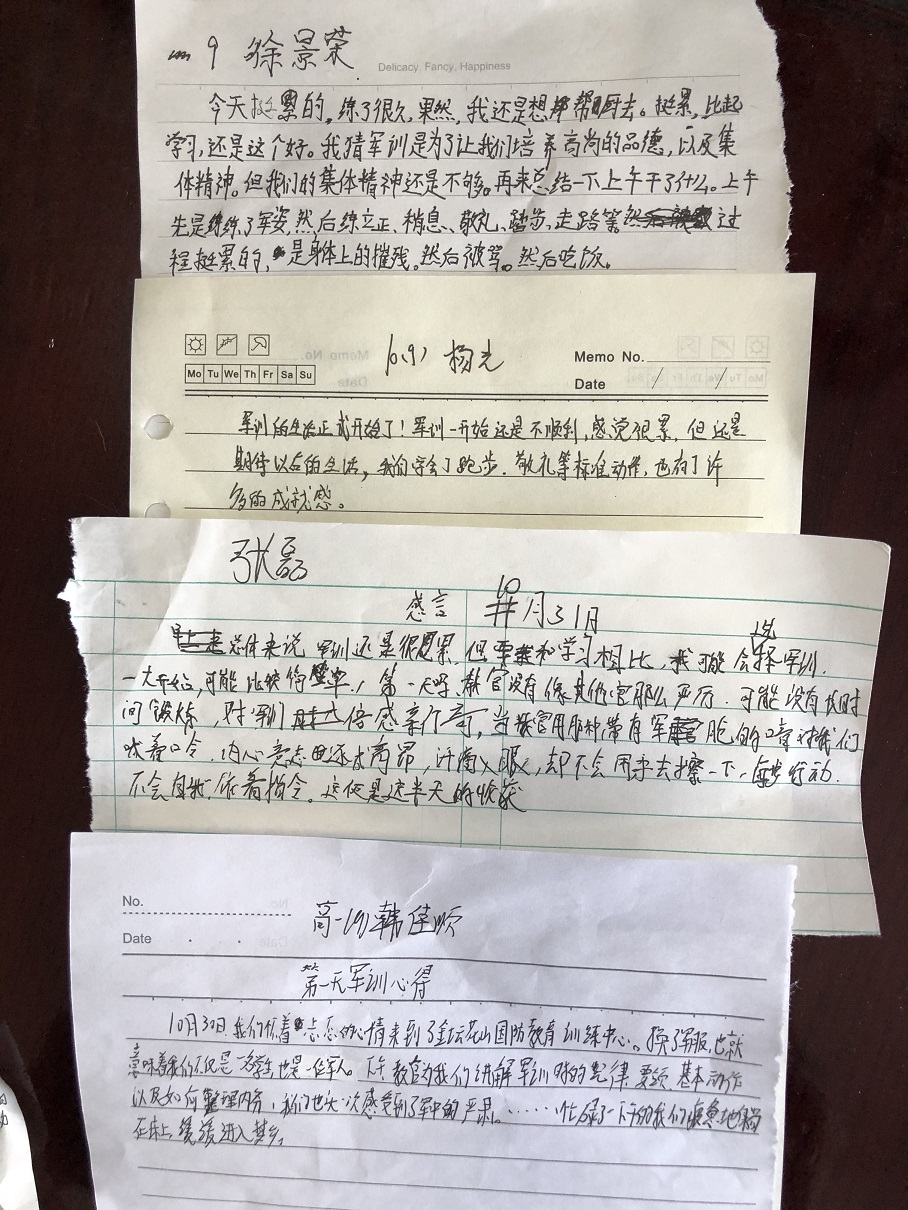 9 徐景荣
Delicacy, Fancy, Happiness
今天挺累的,练了很久,果然,我还是想帮厨去。挺累,比起
学习,还是这个好。我猜军训是为了让我们培养高尚的品德,以及集
体精神。但我们的集体精神还是不够。再来总结一下上午干了什么。上午
先是练了军姿,然后练立正、稍息、敬礼、踏步、走路等 过
程挺累的,是身体上的摧残。然后被骂。然后吃饭。
10(9) 杨光
Memo No.
Mo Tu We Th Fr Sa Su
Date / /
军训的生活正式开始了!军训一开始还是不顺利,感觉很累,但还是
期待以后的生活,我们学会了跑步、敬礼等标准动作,也有了许
多的成就感。
张磊
感言 10月31日
总体来说 军训还是很累,但和学习相比,我可能会选择军训.
一大开始,可能比较, 第一天呀、教官没有像其他官那么严厉、可能没有长时
间锻炼,对军训倍感亲行,当教官用那种带有军腔的口音对我们
喊着口令,内心意志逐成高昂,汗滴义眼,却不会用手去擦一下、每步行动.
不会自我,依着指令。这便是这半天的收获
No.
高一(9)韩佳顺
Date . .
第一天军训心得
10月30日 我们怀着忐忑的心情来到了金坛花山国防教育训练中心。换了军服,也就
意味着我们不仅是一名学生,也是一位军人。下午 教官为我们讲解军训时的纪律 要领 基本动作
以及如何整理内务,我们也头一次感受到了军中的严肃。……忙碌了一下午的我们疲惫地躺
在床上 缓缓进入梦乡。